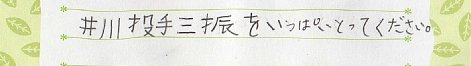 井川投手三振をいっぱいとってください。